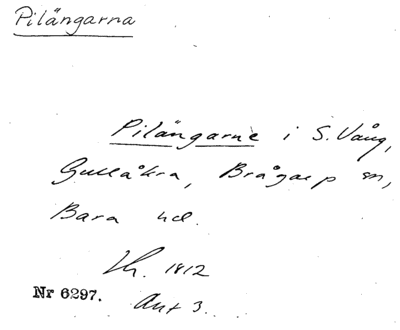 Pilängarna
Pilängarne i S. Vång,
Gullåkra, Brågarp sn,
Bara hd.
Lh. 1812
Nr 6297. Akt 3.